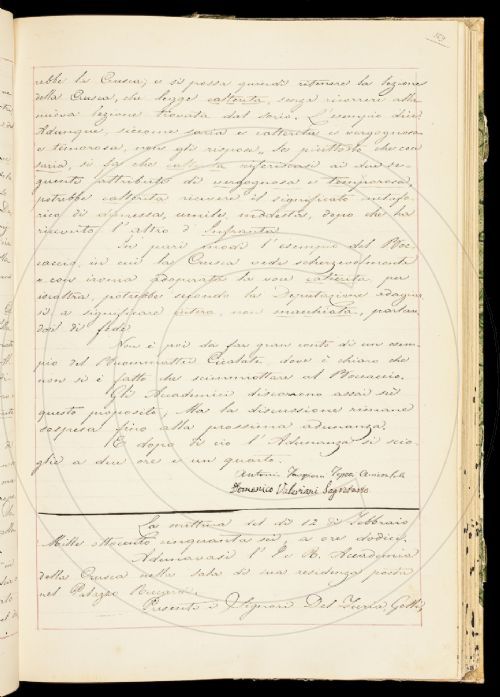 rebbe la Crusca; e si possa quindi ritenere la lezione
della Crusca, che legge catterita, senza ricorrere alla
nuova lezione trovata dal Sorio. L'esempio dice
Adunque, siccome savia e catterita e vergognosa
e timorosa, non gli rispose. Se piuttosto che con
savia, si sa che catterita riferiscasi ai due se-
guenti attributi di vergognosa e temporosa,
potrebbe catterita ricevere il significato metafo-
rico di dimessa, umile, modesta, dopo che ha
ricevuto l'altro d'Infranta.
In pari modo l'esempio del Boc-
caccio, in cui la Crusca vede scherzevolmente
e con ironia adoperata la voce catterita, per
iscaltra, potrebbe secondo la Deputazione adoprar-
si a significare intera, non macchiata, parlan-
dosi di fede.
Non è poi da far gran conto di un esem-
pio del Buommattei Cicalate dove è chiaro che
non si è fatto che scimmiottare al Boccaccio.
Gli Accademici discorrono assai su
questo proposito, Ma la discussione rimane
sospesa fino alla prossima adunanza.
E dopo di ciò l'Adunanza si scio-
glie a due ore e un quarto.
Domenico Valeriani Segretario
La mattina del dì 12 di Febbraio
Mille ottocento cinquanta sei, a ore dodici,
Adunavasi l'I. e R. Accademia
della Crusca nella sala di sua residenza posta
nel Palazzo Riccardi.
Presenti i Signori Del Furia, Gotti,